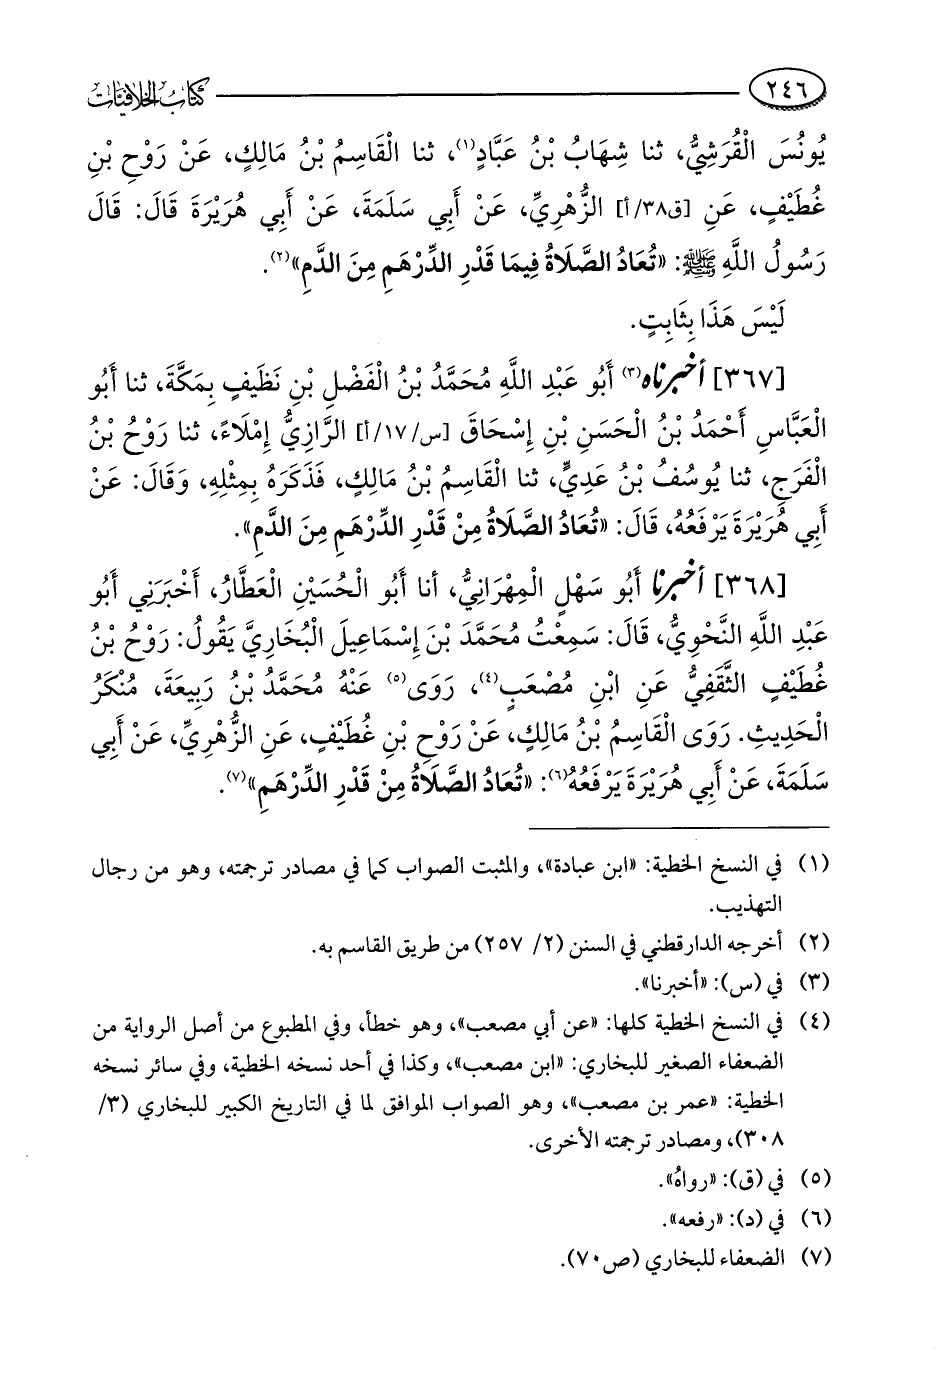 ٢٤٦ كتاب الخلافيات
يُونُسَ الْقُرَشِيُّ، ثنا شِهَابُ بْنُ عَبَّادٍ(١)، ثنا الْقَاسِمُ بْنُ مَالِكٍ، عَنْ رَوْحِ بْنِ
غُطَيْفٍ، عَنِ [ق٣٨/أ] الزُّهْرِيِّ، عَنْ أَبِي سَلَمَةَ، عَنْ أَبِي هُرَيْرَةَ قَالَ: قَالَ
رَسُولُ اللَّهِ ﷺ: «تُعَادُ الصَّلَاةُ فِيمَا قَدْرِ الدِّرْهَمِ مِنَ الدَّمِ»(٢).
لَيْسَ هَذَا بِثَابِتٍ.
[٣٦٧] أخبرناه(٣) أَبُو عَبْدِ اللَّهِ مُحَمَّدُ بْنُ الْفَضْلِ بْنِ نَظَيفٍ بِمَكَّةَ، ثنا أَبُو
الْعَبَّاسِ أَحْمَدُ بْنُ الْحَسَنِ بْنِ إِسْحَاقَ [س/١٧/أ] الرَّازِيُّ إِمْلَاءً، ثنا رَوْحُ بْنُ
الْفَرَجِ، ثنا يُوسُفُ بْنُ عَدِيٍّ، ثنا الْقَاسِمُ بْنُ مَالِكٍ، فَذَكَرَهُ بِمِثْلِهِ، وَقَالَ: عَنْ
أَبِي هُرَيْرَةَ يَرْفَعُهُ، قَالَ: «تُعَادُ الصَّلَاةُ مِنْ قَدْرِ الدِّرْهَمِ مِنَ الدَّمِ».
[٣٦٨] أخبرنا أَبُو سَهْلٍ الْمِهْرَانِيُّ، أنا أَبُو الْحُسَيْنِ الْعَطَّارُ، أَخْبَرَنِي أَبُو
عَبْدِ اللَّهِ النَّحْوِيُّ، قَالَ: سَمِعْتُ مُحَمَّدَ بْنَ إِسْمَاعِيلَ الْبُخَارِيَّ يَقُولُ: رَوْحُ بْنُ
غُطَيْفٍ الثَّقَفِيُّ عَنِ ابْنِ مُصْعَبٍ(٤)، رَوَى(٥) عَنْهُ مُحَمَّدُ بْنُ رَبِيعَةَ، مُنْكَرُ
الْحَدِيثِ. رَوَى الْقَاسِمُ بْنُ مَالِكٍ، عَنْ رَوْحِ بْنِ غُطَيْفٍ، عَنِ الزُّهْرِيِّ، عَنْ أَبِي
سَلَمَةَ، عَنْ أَبِي هُرَيْرَةَ يَرْفَعُهُ(٦): «تُعَادُ الصَّلَاةُ مِنْ قَدْرِ الدِّرْهَمِ»(٧).
(١) في النسخ الخطية: «ابن عبادة»، والمثبت الصواب كما في مصادر ترجمته، وهو من رجال
التهذيب.
(٢) أخرجه الدارقطني في السنن (٢/ ٢٥٧) من طريق القاسم به.
(٣) في (س): «أخبرنا».
(٤) في النسخ الخطية كلها: «عن أبي مصعب»، وهو خطأ، وفي المطبوع من أصل الرواية من
الضعفاء الصغير للبخاري: «ابن مصعب»، وكذا في أحد نسخه الخطية، وفي سائر نسخه
الخطية: «عمر بن مصعب»، وهو الصواب الموافق لما في التاريخ الكبير للبخاري (٣/
٣٠٨)، ومصادر ترجمته الأخرى.
(٥) في (ق): «رواهُ».
(٦) في (د): «رفعه».
(٧) الضعفاء للبخاري (ص٧٠).